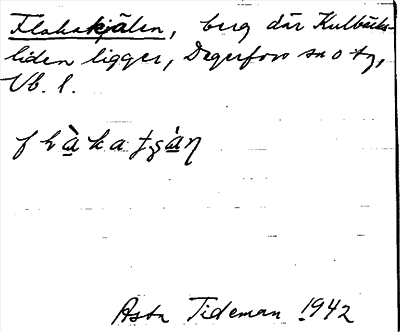 Flakakjälen, berg där Kulbäcks-
liden ligger, Degerfors sn o tg,
Vb. l.
Asta Tideman 1942